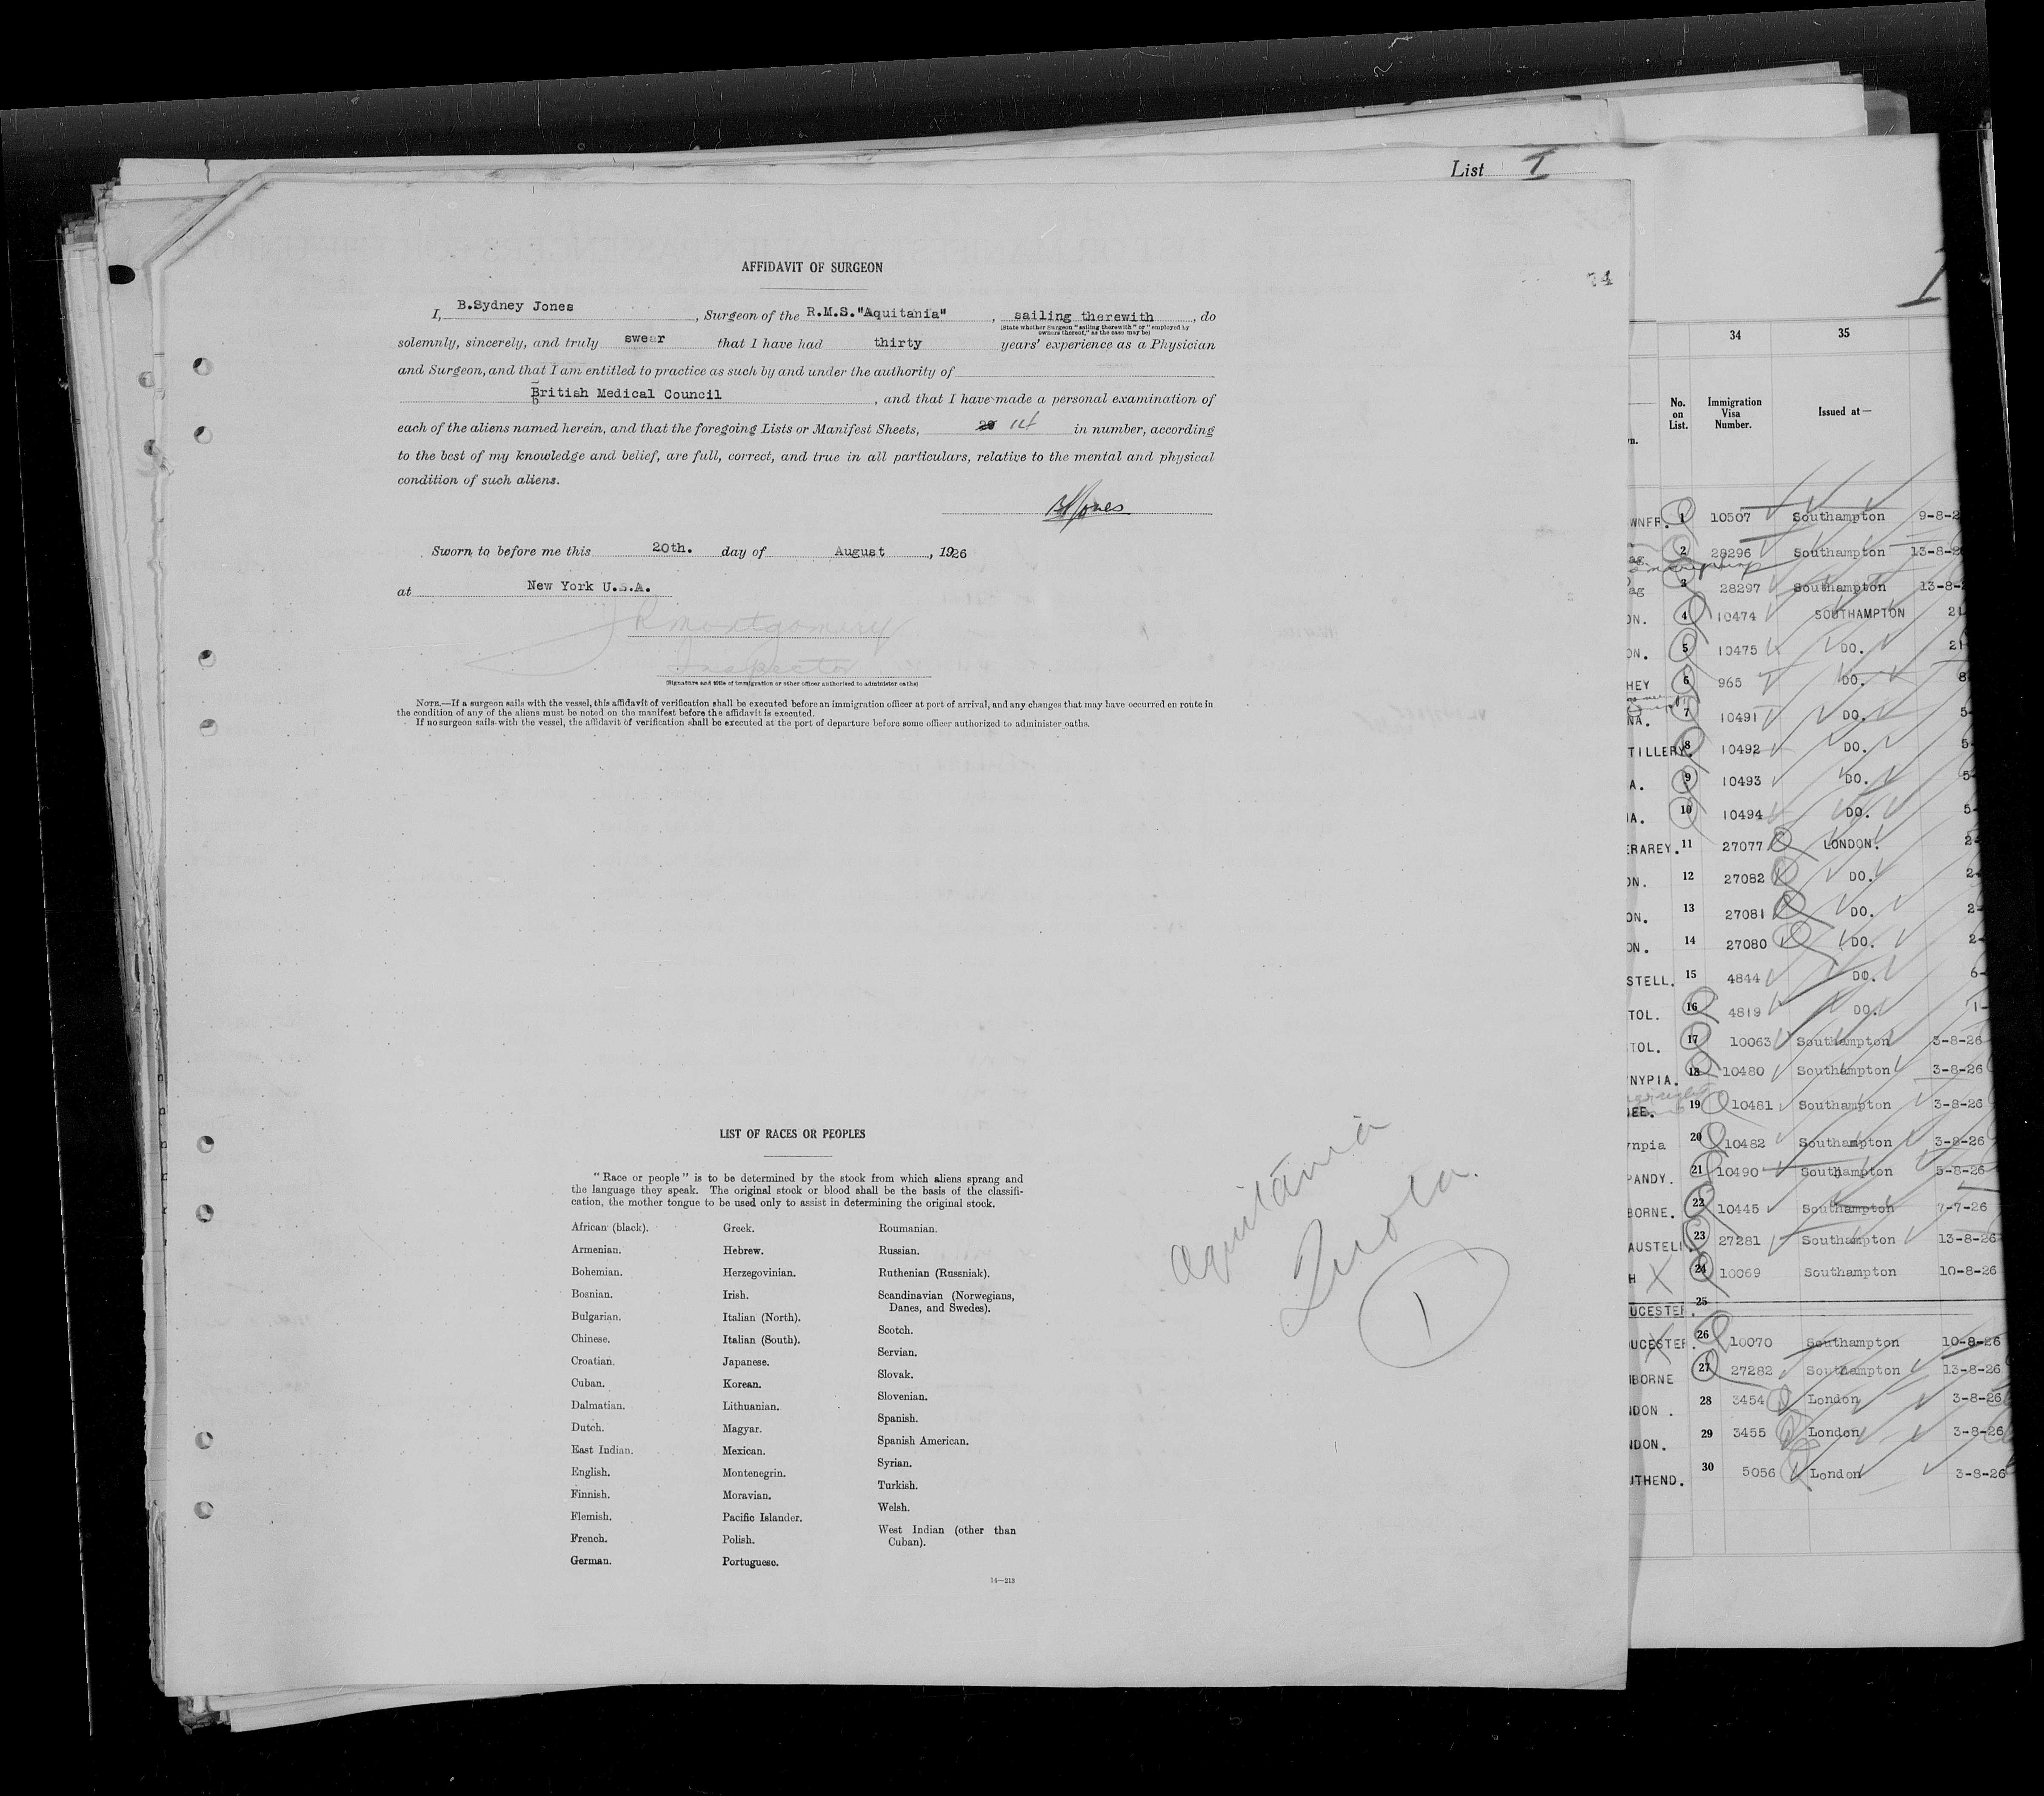 List I
74
AFFIDAVIT OF SURGEON
I, B.Sydney Jones , Surgeon of the R.M.S."Aquitania" , sailing therewith , do
(State whether Surgeon "sailing therewith" or "employed by
owners thereof," as the case may be)
solemnly, sincerely, and truly swear that I have had thirty years' experience as a Physician
and Surgeon, and that I am entitled to practice as such by and under the authority of
British Medical Council , and that I have made a personal examination of
each of the aliens named herein, and that the foregoing Lists or Manifest Sheets, 14 in number, according
to the best of my knowledge and belief, are full, correct, and true in all particulars, relative to the mental and physical
condition of such aliens.
BSJones
Sworn to before me this 20th. day of August , 1926
at New York U.S.A.
JRMontgomery
Inspector
(Signature and title of immigration or other officer authorized to administer oaths)
NOTE.—If a surgeon sails with the vessel, this affidavit of verification shall be executed before an immigration officer at port of arrival, and any changes that may have occurred en route in
the condition of any of the aliens must be noted on the manifest before the affidavit is executed.
If no surgeon sails with the vessel, the affidavit of verification shall be executed at the port of departure before some officer authorized to administer oaths.
LIST OF RACES OR PEOPLES
"Race or people" is to be determined by the stock from which aliens sprang and
the language they speak. The original stock or blood shall be the basis of the classifi-
cation, the mother tongue to be used only to assist in determining the original stock.
African (black).
Armenian.
Bohemian.
Bosnian.
Bulgarian.
Chinese.
Croatian.
Cuban.
Dalmatian.
Dutch.
East Indian.
English.
Finnish.
Flemish.
French.
German.
Greek.
Hebrew.
Herzegovinian.
Irish.
Italian (North).
Italian (South).
Japanese.
Korean.
Lithuanian.
Magyar.
Mexican.
Montenegrin.
Moravian.
Pacific Islander.
Polish.
Portuguese.
Roumanian.
Russian.
Ruthenian (Russniak).
Scandinavian (Norwegians,
Danes, and Swedes).
Scotch.
Servian.
Slovak.
Slovenian.
Spanish.
Spanish American.
Syrian.
Turkish.
Welsh.
West Indian (other than
Cuban).
14—213
Aquitania
Quota.
1
I
34 35
No.
on
List.
Immigration
Visa
Number.
Issued at —
WNFF. 1 10507 Southampton 9-8-2
2 28296 Southampton 13-8-2
3 28297 Southampton 13-8-2
ON. 4 10474 SOUTHAMPTON 21
ON. 5 10475 DO. 21
HEY 6 965 DO. 8
NA. 7 10491 DO. 5-
TILLERY. 8 10492 DO. 5-
A. 9 10493 DO. 5-
IA. 10 10494 DO. 5-
ERAREY. 11 27077 LONDON. 2-
ON. 12 27082 DO. 2-
ON. 13 27081 DO. 2-
ON. 14 27080 DO. 2-
STELL. 15 4844 DO. 6-
TOL. 16 4819 DO. 1-
TOL. 17 10063 Southampton 3-8-26
NYPIA. 18 10480 Southampton 3-8-26
NEE. 19 10481 Southampton 3-8-26
ynpia 20 10482 Southampton 3-8-26
PANDY. 21 10490 Southampton 5-8-26
BORNE. 22 10445 Southampton 7-7-26
AUSTELL. 23 27281 Southampton 13-8-26
H X 24 10069 Southampton 10-8-26
UCESTER. 25
UCESTER. 26 10070 Southampton 10-8-26
BORNE 27 27282 Southampton 13-8-26
NDON . 28 3454 London 3-8-26
NDON. 29 3455 London 3-8-26
UTHEND. 30 5056 London 3-8-26